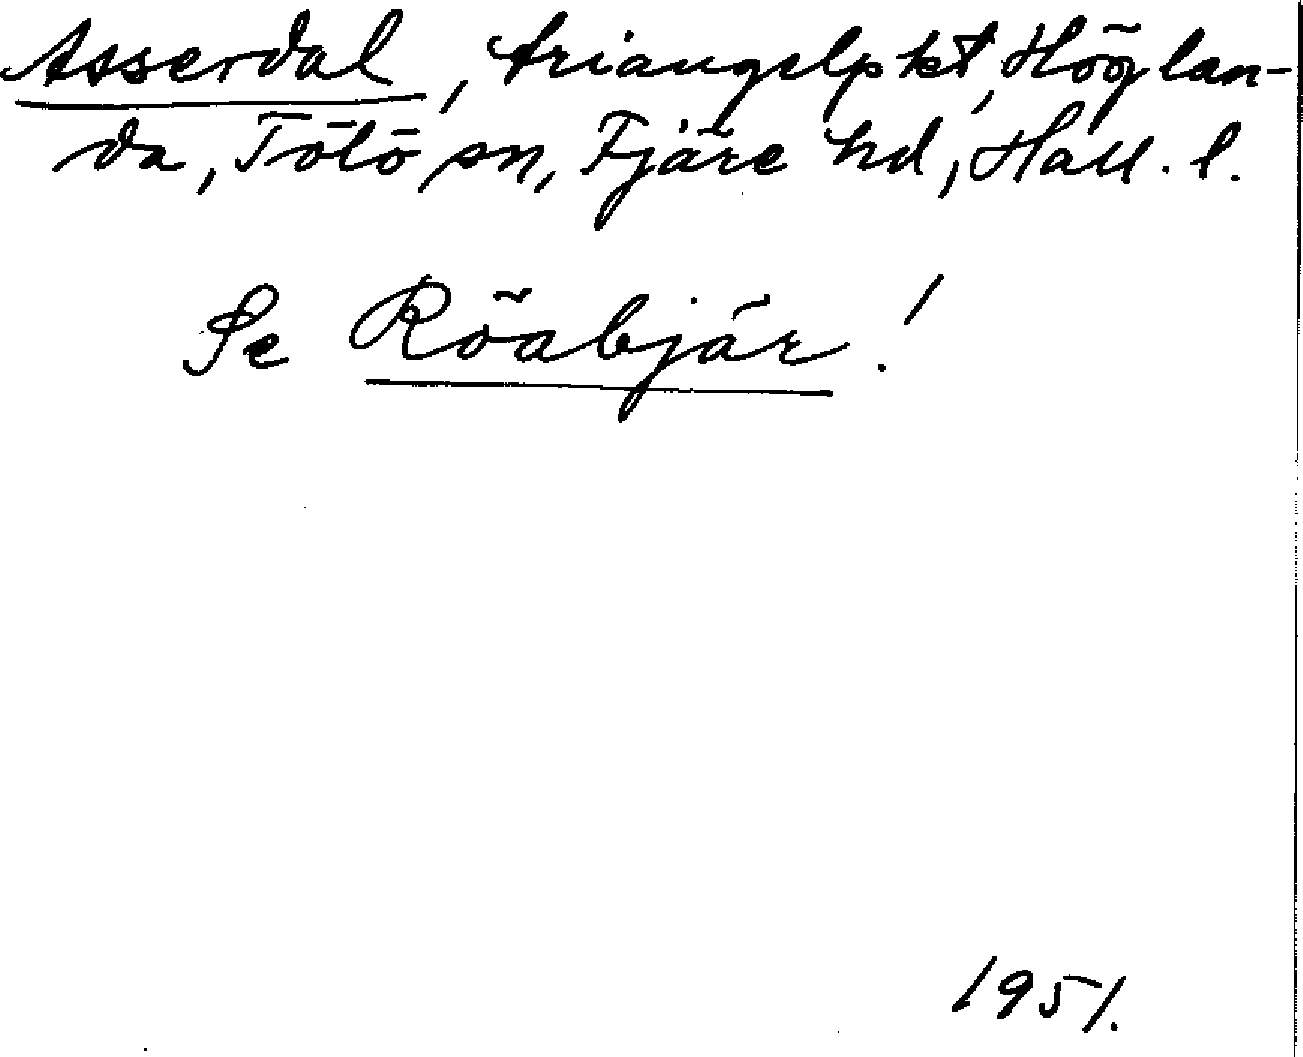 Asserdal, triangelpkt, Höglan-
da, Tölö sn, Fjäre hd, Hall. l.
Se Röabjär!
1951.